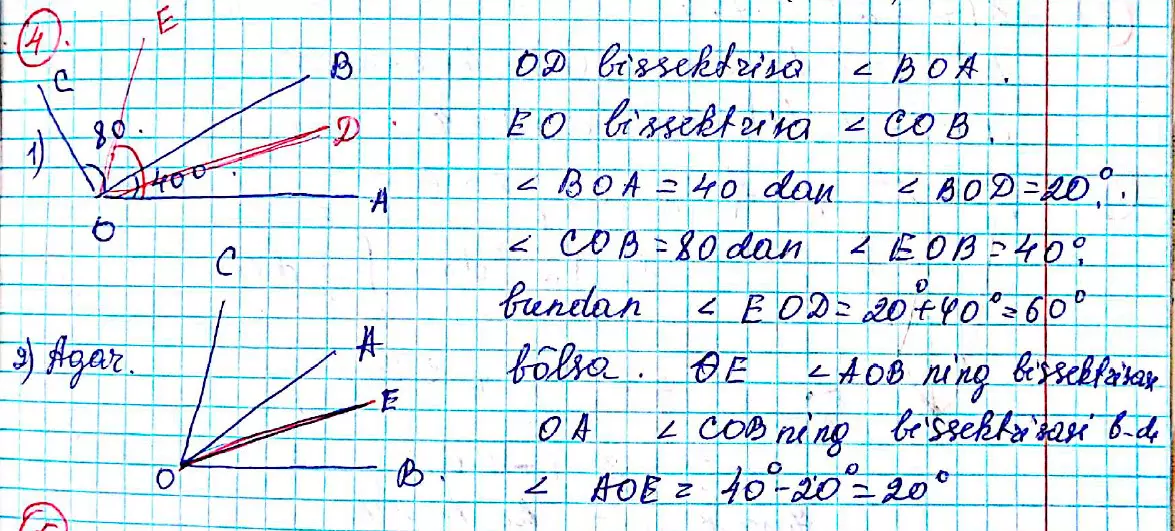 4.
E
C
B
80.
D.
1)
40°.
A
O
OD bissektrisa < BOA.
EO bissektrisa < COB.
< BOA = 40 dan < BOD = 20°.
< COB = 80 dan < EOB = 40°.
bundan < EOD = 20° + 40° = 60°
C
A
2) Agar.
E
O
B.
bôlsa. OE < AOB ning bissektrisasi
OA < COB ning bissektrisasi b-di
< AOE = 40° - 20° = 20°